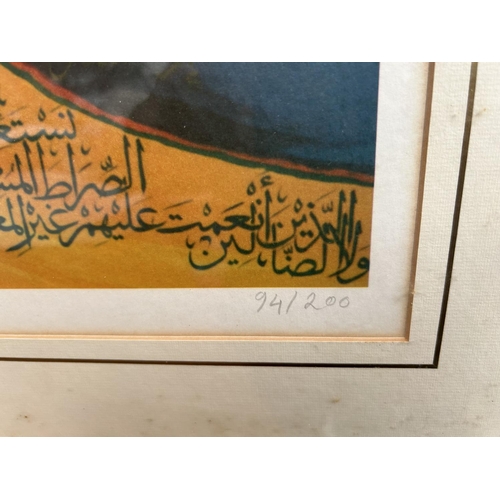 نستع
الصراط المس
الذين أنعمت عليهم غير المغ
ولا الضالين
94/200